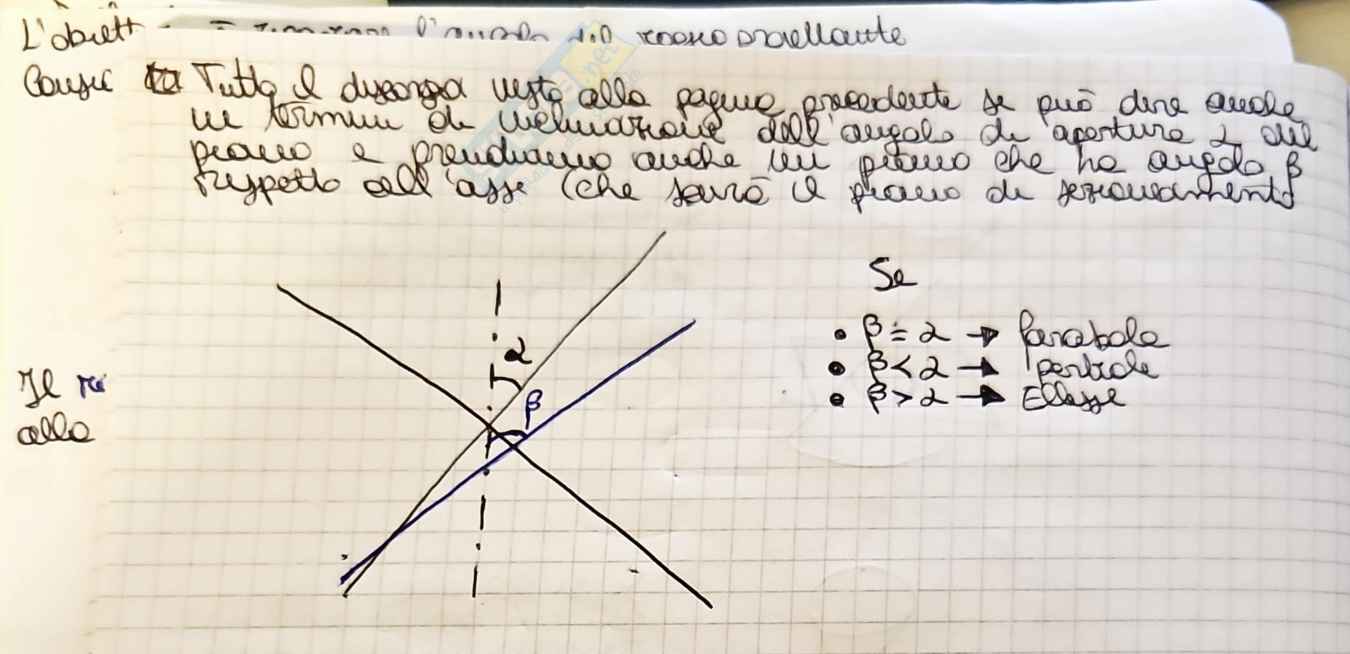 L'obiett
l'angolo del cono oscillante
Consi Tutto il discorso visto alla pagina precedente si può dire anche
in termini di inclinazione dell'angolo di apertura α del
piano e prendiamo anche un piano che ha angolo β
rispetto all'asse (che sarà il piano di sezionamento
Se
α
• β = α → Parabola
• β < α → Iperbole
• β > α → Ellisse
β
Il
alla